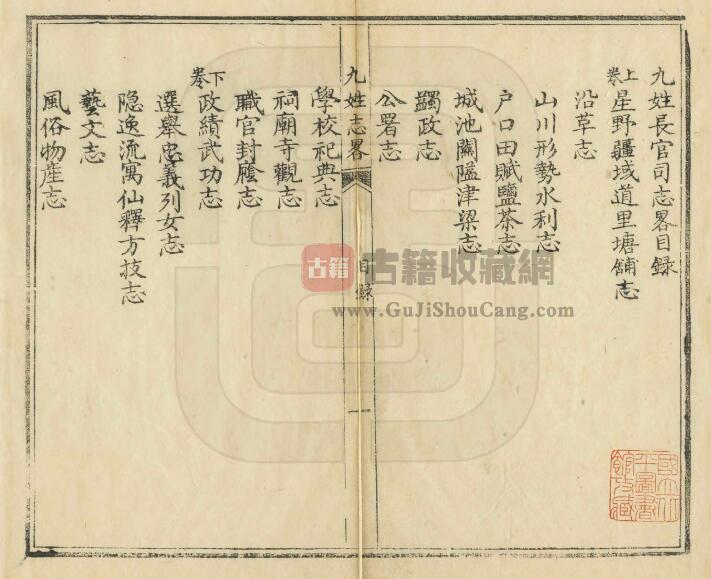 九姓長官司志畧目録
卷上 星野疆域道里塘舖志
沿革志
山川形勢水利志
户口田賦鹽茶志
城池關隘津梁志
蠲政志
公署志
九姓志畧 目録 一
學校祀典志
祠廟寺觀志
職官封廕志
卷下 政績武功志
選舉忠義列女志
隐逸流寓仙釋方技志
藝文志
風俗物産志
國立北
平圖書
館收藏
古籍 古籍收藏網
www.GuJiShouCang.com